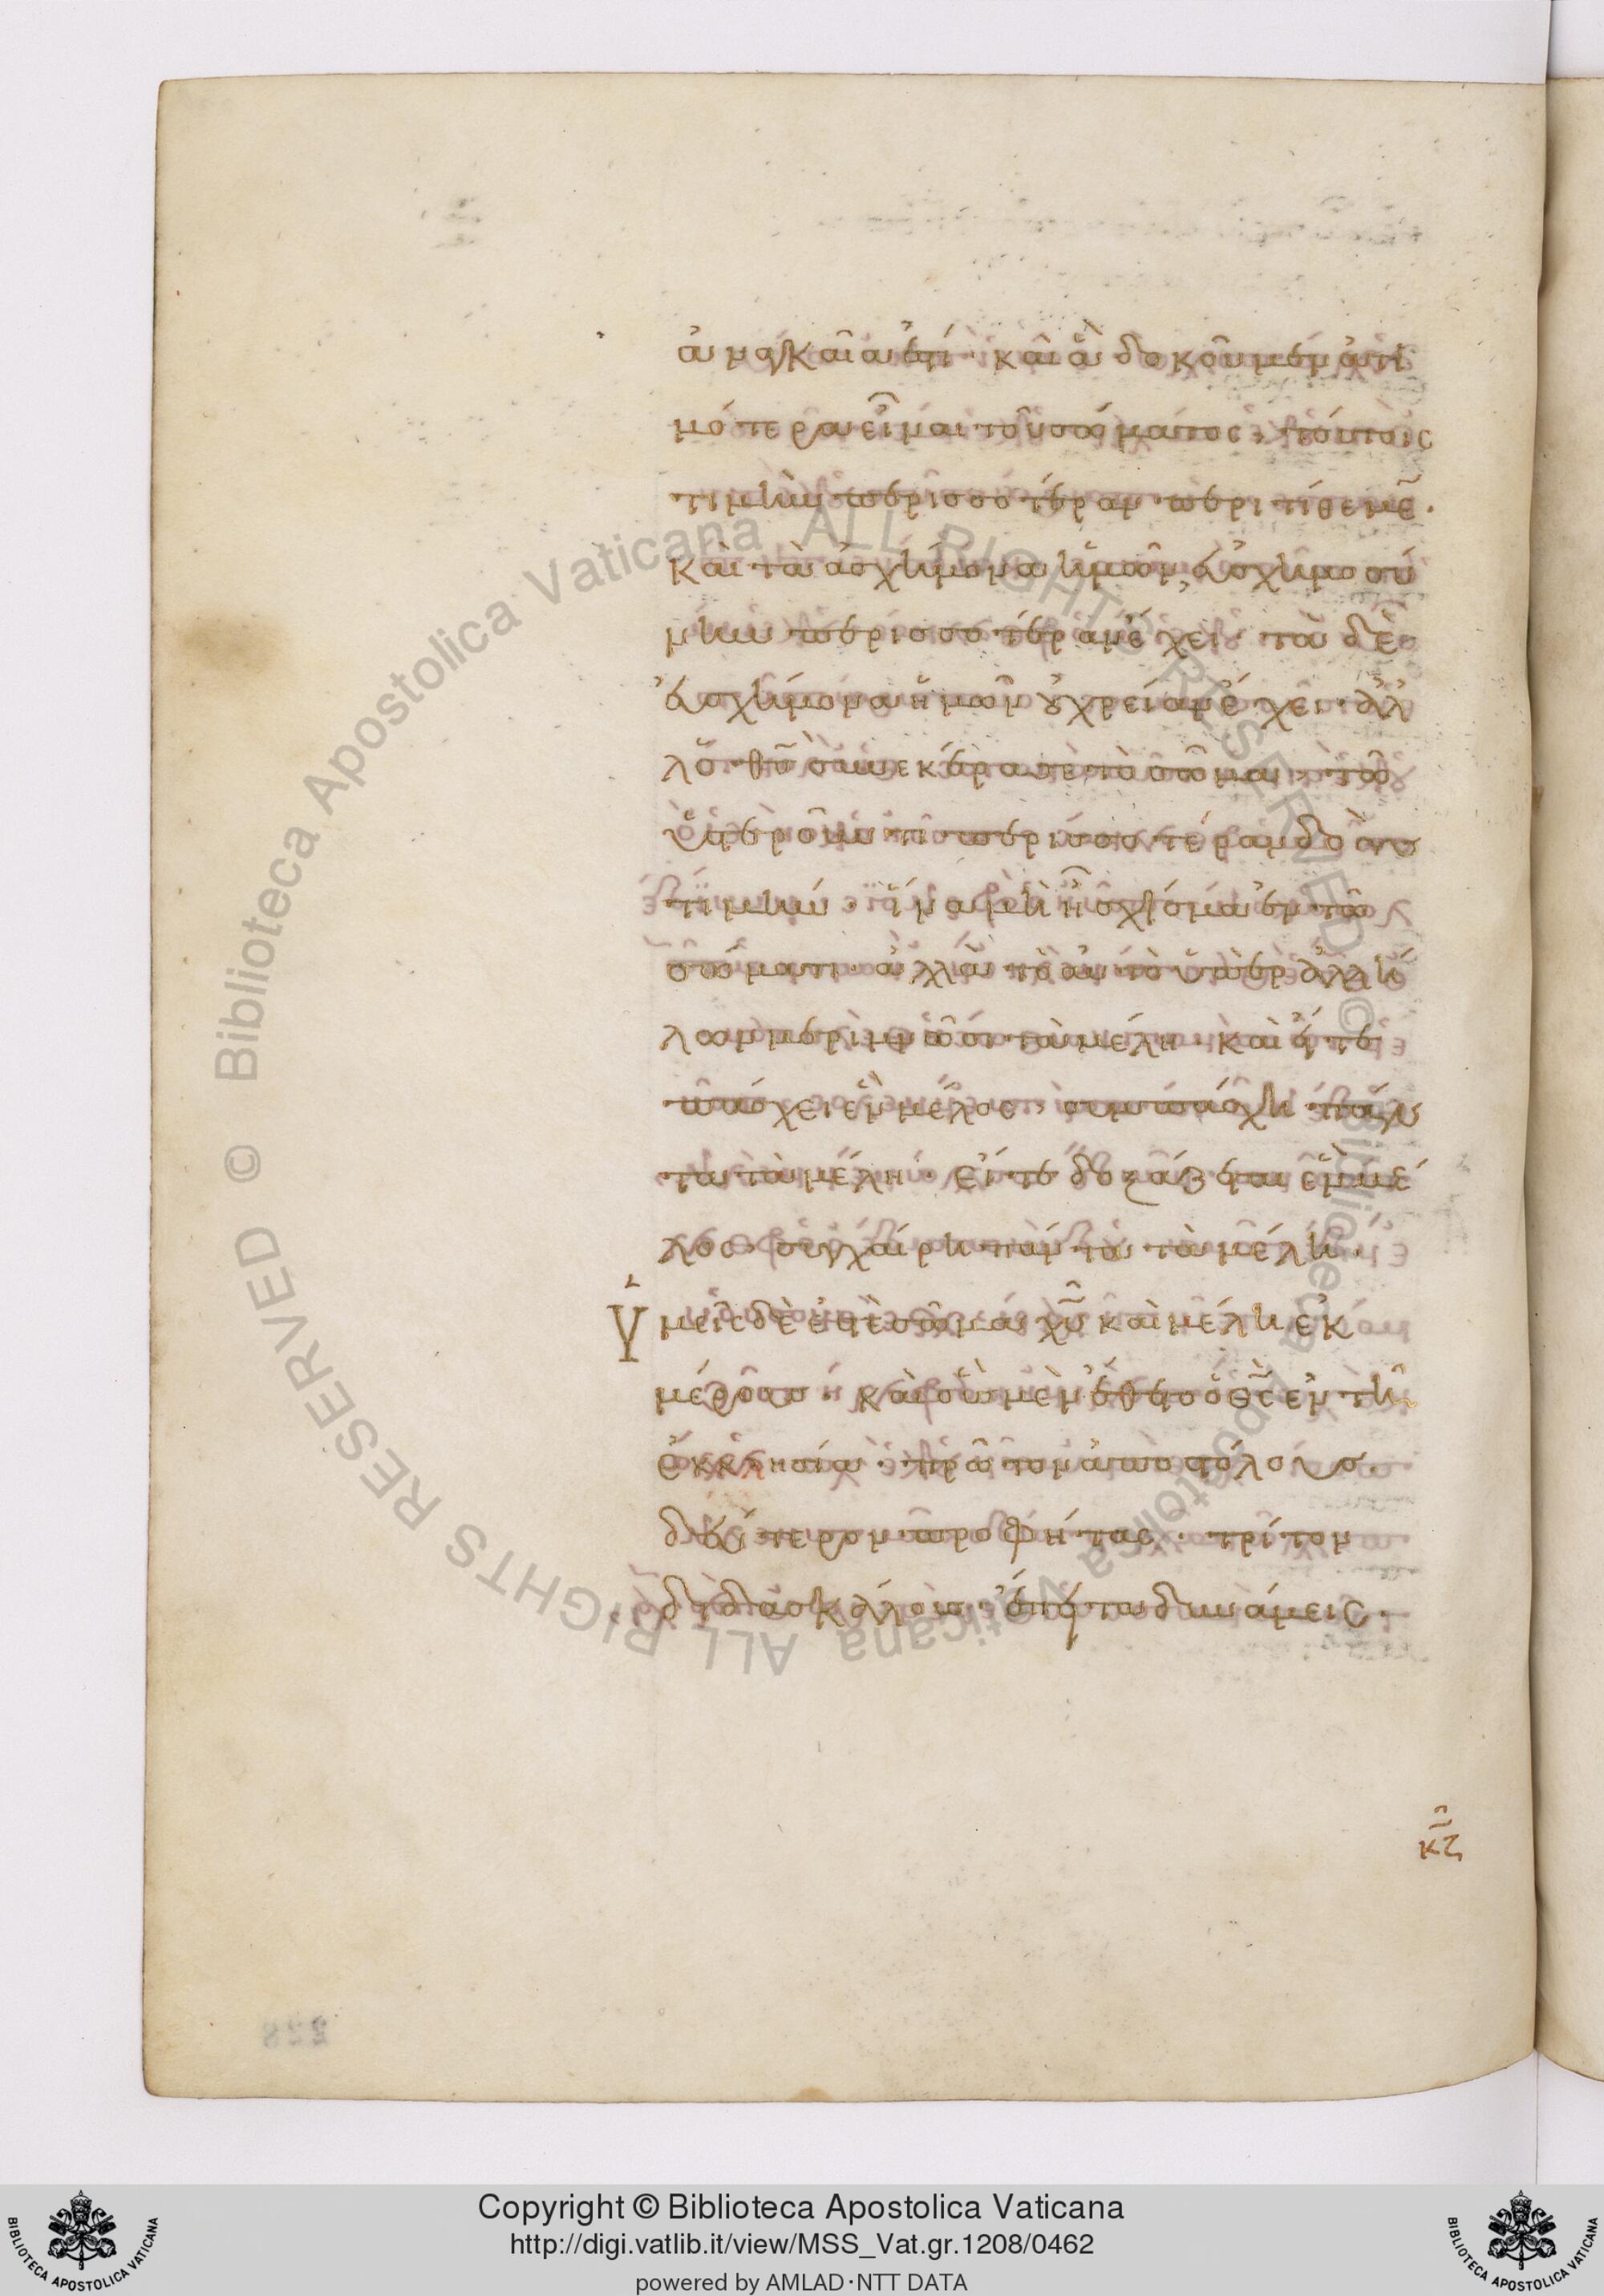 ἀναγκαῖα ἐστί· καὶ ἃ δοκοῦμεν ἀτι
μότερα εἶναι τοῦ σώματος, τούτοις
τιμὴν περισσοτέραν περιτίθεμε̅·
καὶ τὰ ἀσχήμονα ἡμῶν, εὐσχημοσύ
νην περισσοτέραν ἔχει· τὰ δὲ
εὐσχήμονα ἡμῶν οὐ χρείαν ἔχει· ἀλ
λ' ὁ θ̅ς̅ συνεκέρασε τὸ σῶμα, τῶ
ὑστεροῦντι περισσοτέραν δοὺς
τιμήν· ἵνα μὴ ἦ σχίσμα ἐν τῶ
σώματι· ἀλλὰ τὸ αὐτὸ ὑπὲρ ἀλλή
λων μεριμνῶσι τὰ μέλη· καὶ εἴτε
πάσχει ἓν μέλος, συμπάσχει πάν
τα τὰ μέλη· εἴτε δοξάζεται ἓν μέ
λος, συγχαίρει πάντα τὰ μέλη·
Ὑμεῖς δὲ ἐστὲ σῶμα χ̅υ̅ καὶ μέλη ἐκ
μέρους· καὶ οὓς μὲν ἔθετο ὁ θ̅ς̅ ἐν τῆ
ἐκκλησία· πρῶτον ἀποστόλους·
δεύτερον προφήτας· τρίτον
διδασκάλους· ἔπειτα δυνάμεις·
κ̅ζ̅
228
Biblioteca Apostolica Vaticana ALL RIGHTS RESERVED © Biblioteca Apostolica Vaticana ALL RIGHTS RESERVED ©
Copyright © Biblioteca Apostolica Vaticana
http://digi.vatlib.it/view/MSS_Vat.gr.1208/0462
powered by AMLAD·NTT DATA
BIBLIOTECA APOSTOLICA VATICANA
BIBLIOTECA APOSTOLICA VATICANA